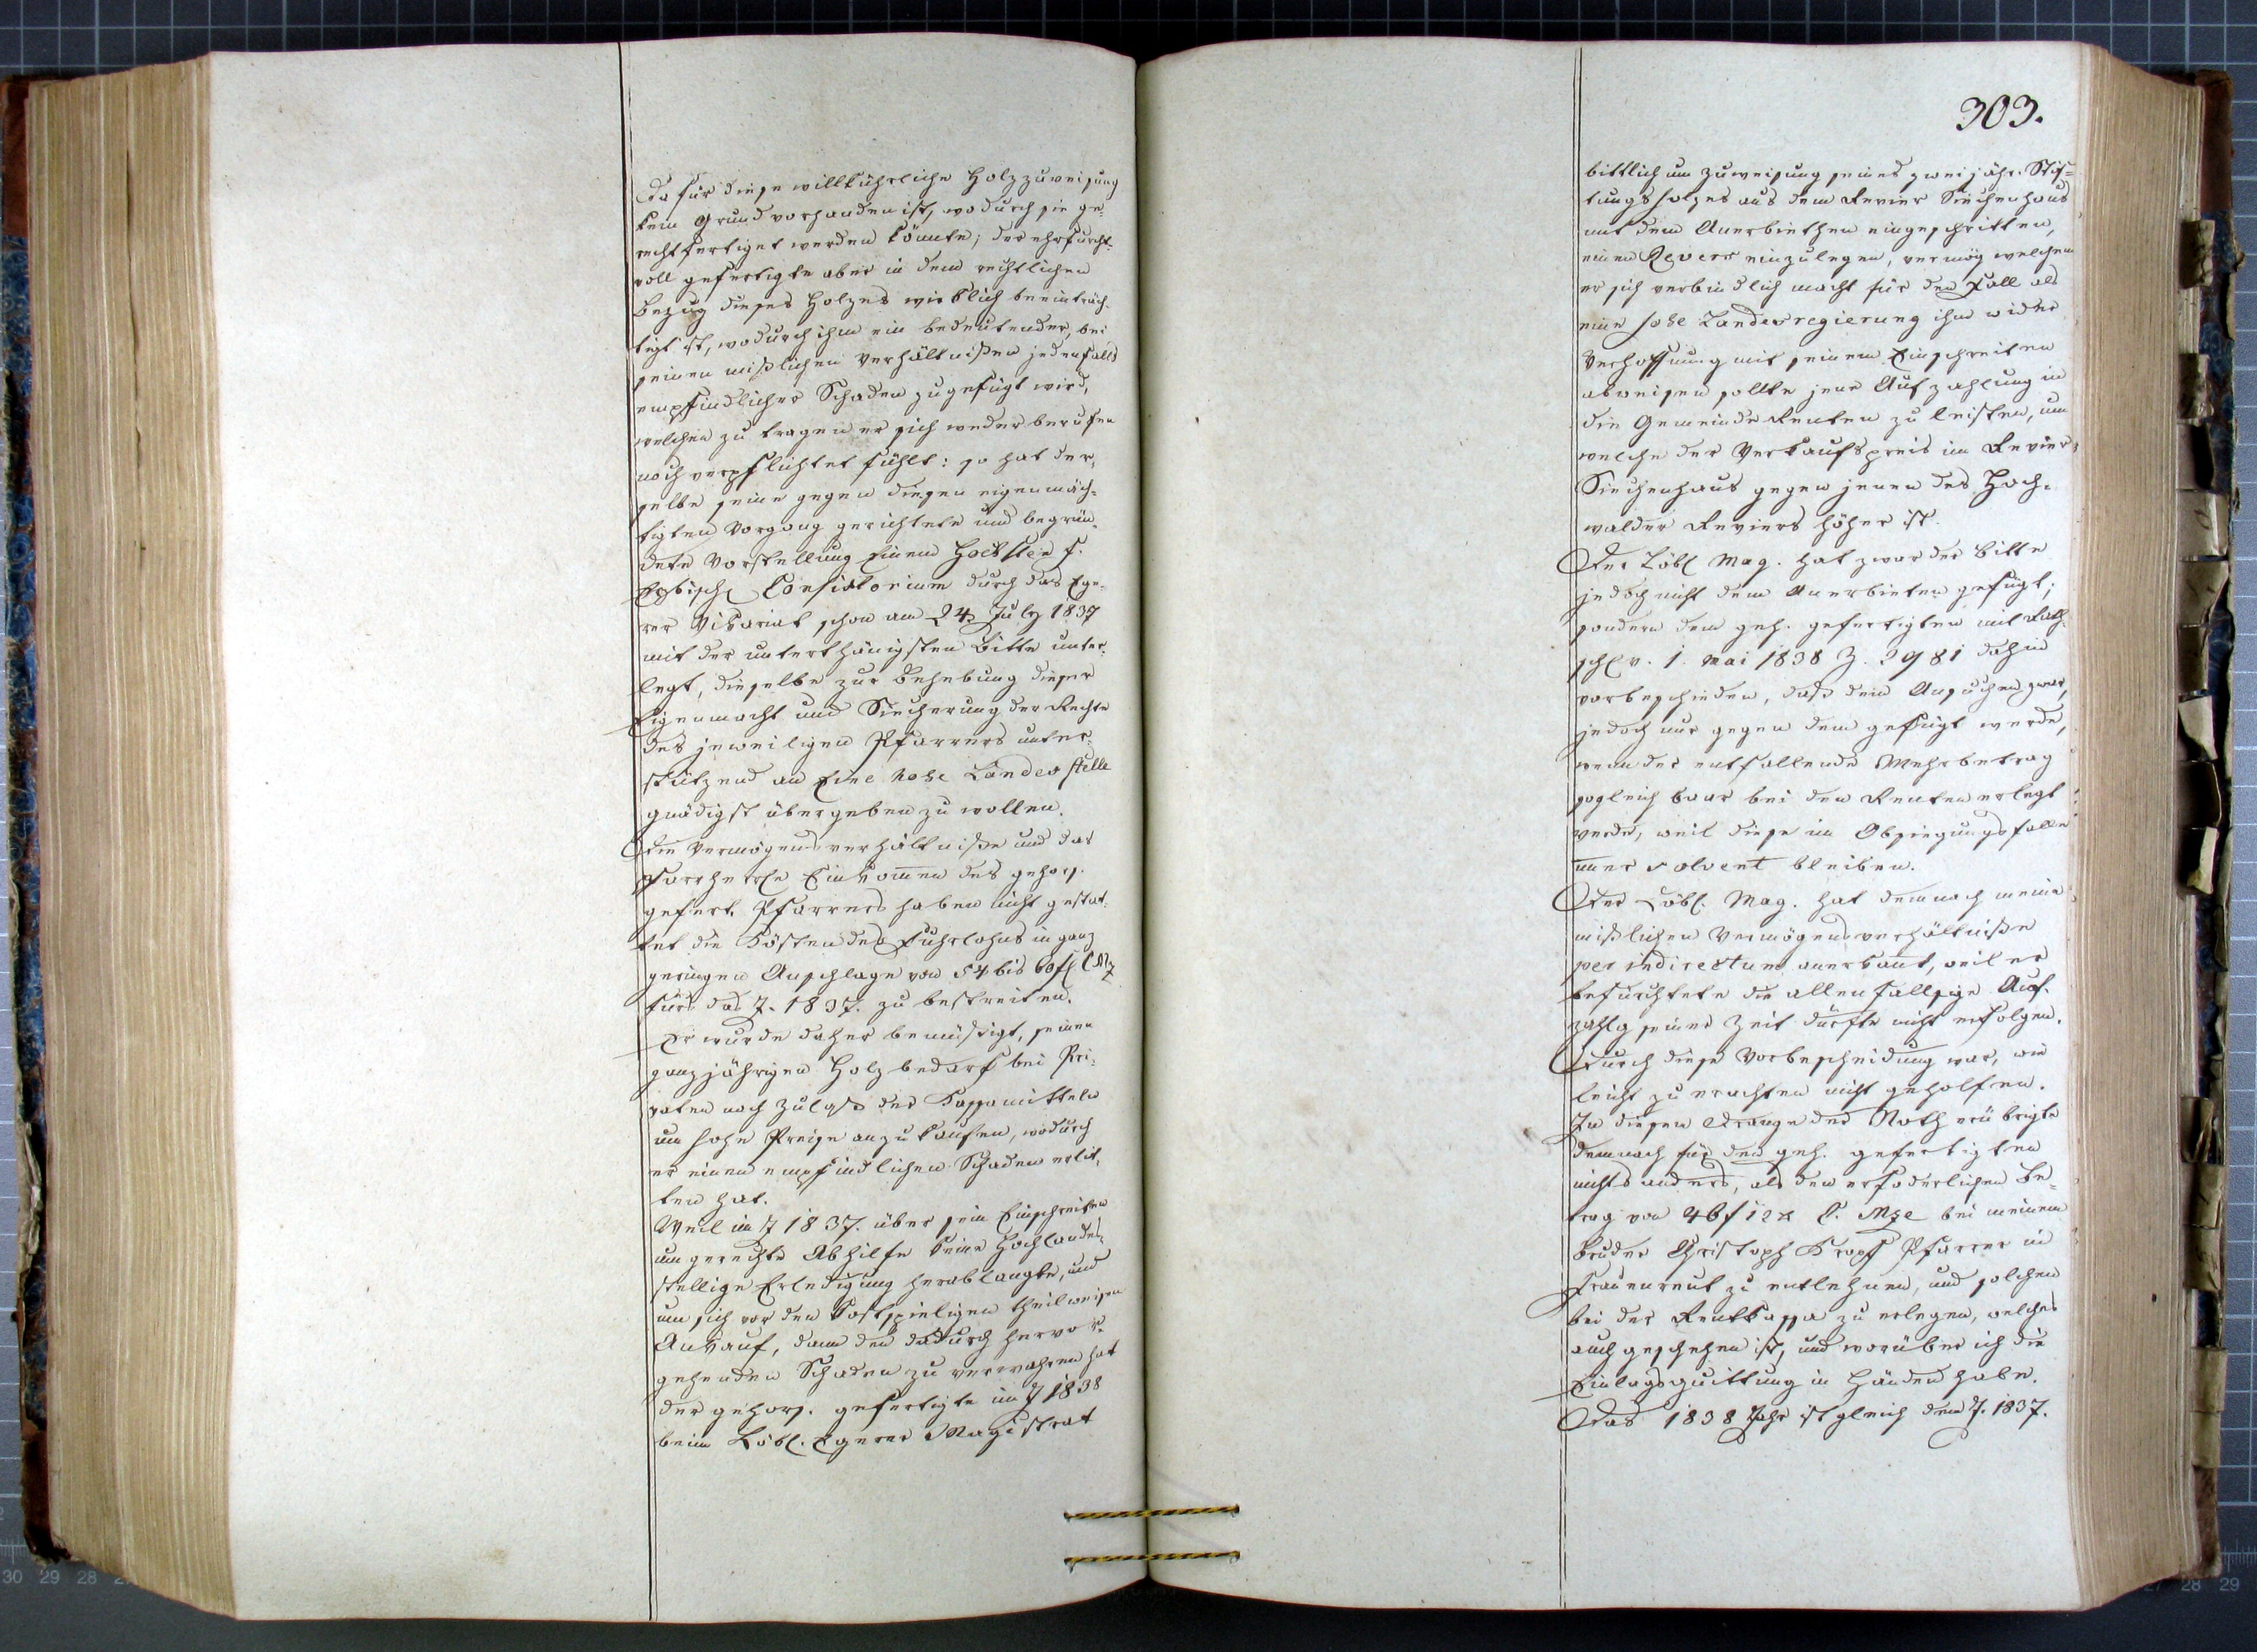 Da für diese willkührliche Holzzuweisung
kein Grund vorhanden ist, wodurch sie ge-
rechtfertiget werden könnte; der ehrfurcht-
voll gefertigte aber in dem rechtlichen
Bezug dieses Holzes wirklich beeinträch-
tigt ist, wodurch ihm ein bedeutender, bei
seinen mißlichen Verhältnißen jedenfalls
empfindlicher Schaden zugefügt wird,
welchen zu tragen er sich weder berufen
noch verpflichtet fühlt: so hat der-
selbe seine gegen diesen eigenmäch-
tigten Vorgang gerichtete und begrün-
dete Vorstellung Einem Hochsten f.
Erzbisch Consistorium durch das Ege-
rer Vikariat schon am 24 July 1837
mit der unterthänigsten Bitte unter-
legt, dieselbe zur Behebung dieser
Eigenmacht und Siecherung der Rechte
des jeweiligen Pfarrers unter-
stützend an Eine hohe Landesstelle
gnädigst übergeben zu wollen.
Die Vermögensverhältniße und das
Pfarrherrle Einkom̄en des gehors.
gefert. Pfarrers haben nicht gestat-
tet die Kösten des Fuhrlohns in ganz
geringen Anschlage von 54 bis 60 f CMz
fürs das J. 1837. zu bestreiten.
Er wurde daher bemüßigt, seinen
ganzjährigen Holzbedarf bei Pri-
vaten nach Zulaß der Kassamitteln
um hohe Preise anzukaufen, wodurch
er einen empfindlichen Schaden erlit-
ten hat.
Weil im J 1837. über sein Einschreiten
um gerechte Abhilfe keine Hochlandes-
stellige Erledigung herablangte, und
um sich vor den kostspieligen theilweisen
Ankauf, dann den dadurch hervor-
gehenden Schaden zu verwahren hat
der gehors. gefertigte im J 1838
beim Löbl. Egerer Magistrat
303.
bittlich um Zuweisung seines zweijähr. Stif-
tungsholzes aus dem Revier Siechenhaus
mit dem Anerbiethen eingeschritten,
einen Revers einzulegen, vermög welchem
er sich verbindlich macht für den Fall als
eine hohe Landesregierung ihm wider
Verhoffnung mit seinem Einschreiten
abweisen sollte jene Aufzahlung in
die Gemeinde Renten zu leisten, um
welche der Verkaufspreis im Revier
Siechenhaus gegen jenen des Hoch-
walder Reviers höher ist.
Der Löbl Mag. hat zwar der Bitte
jedoch nicht dem Anerbieten gefügt,
sondern dem geh. gefertigten mit Rath-
schl v. 1. Mai 1838 Z. 2981 dahin
vorbeschieden, daß dem Ansuchen zwar,
jedoch nur gegen dem gefügt werde,
wenn der entfallende Mehrbetrag
sogleich baar bei den Renten erlegt
werde, weil diese im Obsiegungsfalle
im̄er solvent bleiben.
Der Löbl. Mag. hat demnach meine
mißlichen Vermögensverhältniße
per indirectum anerkannt, weil er
befürchtete die allenfallsige Auf-
zahlg seiner Zeit dürfte nicht erfolgen.
Durch diese Vorbescheidung war, wie
leicht zu erachten nicht geholfen.
In diesem Drange der Noth erübrigte
demnach für den geh. gefertigten
nichts anders, als den erfoderlichen Be-
trag von 46 f 12 x C. Mze bei meinem
Bruder Christoph Kropf Pfarrer in
Frauenreut zu entlehnen, und solchen
bei der Rentkassa zu erlegen, welches
auch geschehen ist, und worüber ich die
Einlagsquittung in Händen habe.
Das 1838 Jahr ist gleich dem J. 1837.